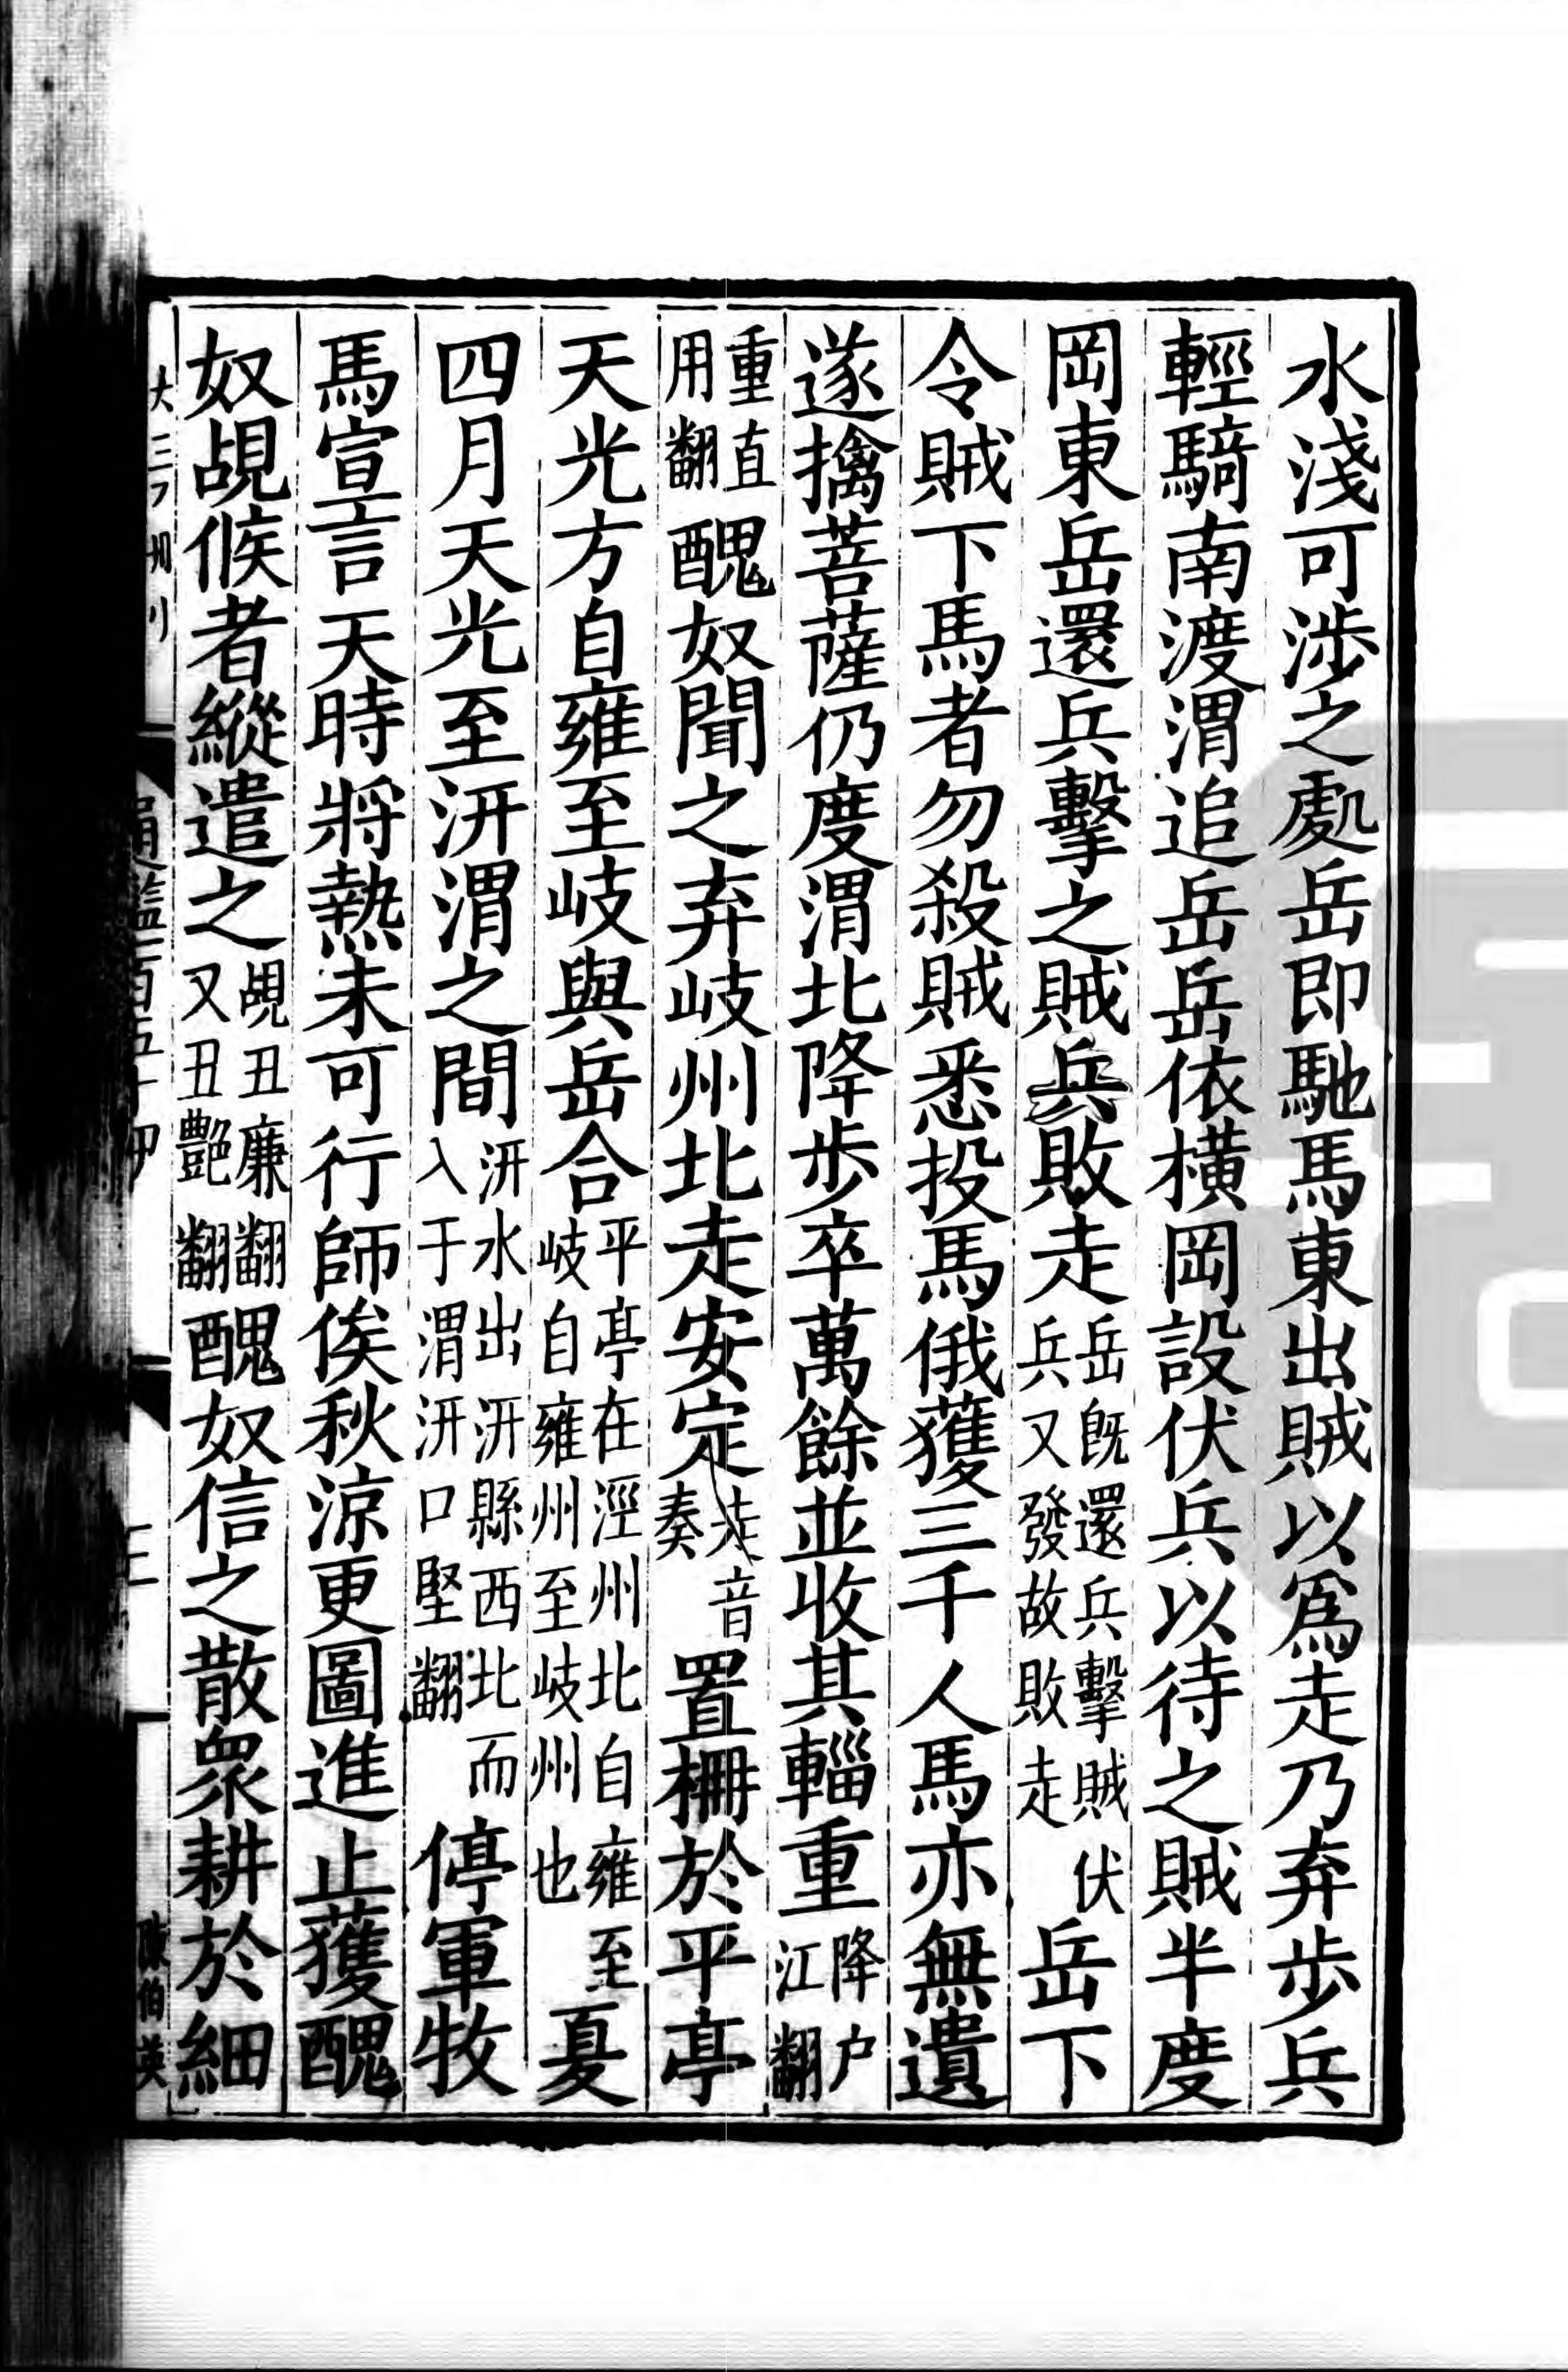 水淺可涉之處岳即馳馬東出賊以爲走乃弃步兵
輕騎南渡渭追岳岳依橫岡設伏兵以待之賊半度
岡東岳還兵擊之賊兵敗走岳既還兵擊賊伏兵又發故敗走岳下
令賊下馬者勿殺賊悉投馬俄獲三千人馬亦無遺
遂擒菩薩仍度渭北降步卒萬餘並收其輜重降户江翻
重直用翻醜奴聞之弃岐州北走安定走音奏置柵於平亭
天光方自雍至岐與岳合平亭在涇州北自雍至岐自雍州至岐州也夏
四月天光至汧渭之間汧水出汧縣西北而入于渭汧口堅翻停軍牧
馬宣言天時將熱未可行師俟秋涼更圖進止獲醜
奴覘候者縱遣之覘丑廉翻又丑艷翻醜奴信之散衆耕於細
陳伯英